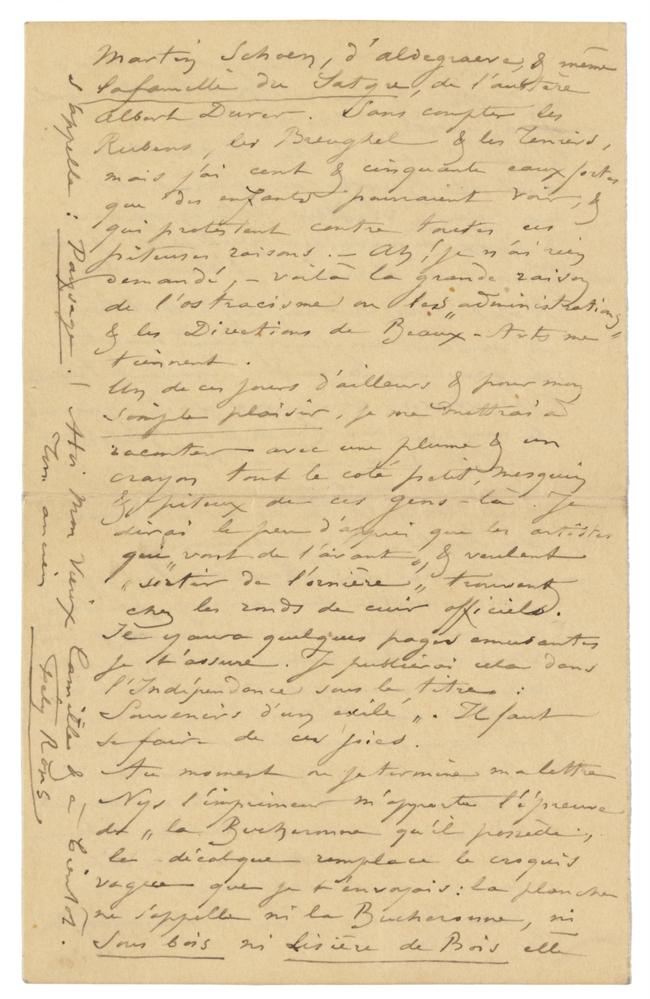 Martin Schoen, d'aldegraeve, & même
la famille du Satyre, de l'austère
Albert Durer. Sans compter les
Rubens, les Breughel & les Teniers,
mais j'ai cent & cinquante eaux fortes
que des enfants pourraient voir, &
qui protestent contre toutes ces
piteuses raisons. – Ah! je n'ai rien
demandé, – voilà la grande raison
de l'ostracisme ou les „administrations„
& les Directions de Beaux-Arts me
tiennent.
Un de ces jours d'ailleurs & pour mon
simple plaisir, je me mettrai à
raconter avec une plume & un
crayon tout le coté petit, mesquin
& piteux de ces gens-là. Je
dirai le peu d'appui que les artistes
qui „vont de l'avant„, & veulent
„sortir de l'ornière„ trouvent
chez les ronds de cuir officiels.
Il y aura quelques pages amusantes
je t'assure. Je publierai cela dans
l'Indépendance sous le titre:
Souvenirs d'un exilé„. Il faut
se faire de ces joies.
Au moment ou je termine ma lettre
Nys l'imprimeur m'apporte l'épreuve
de „la Bucheronne qu'il possède„
le décalque remplace le croquis
vague que je t'envoyais: la planche
ne s'appelle ni la Bucheronne, ni
Sous bois ni Lisière de Bois elle
s'appelle: Paysage. – A toi mon vieux Camille & à bientôt.
Ton ancien
Fély Rops